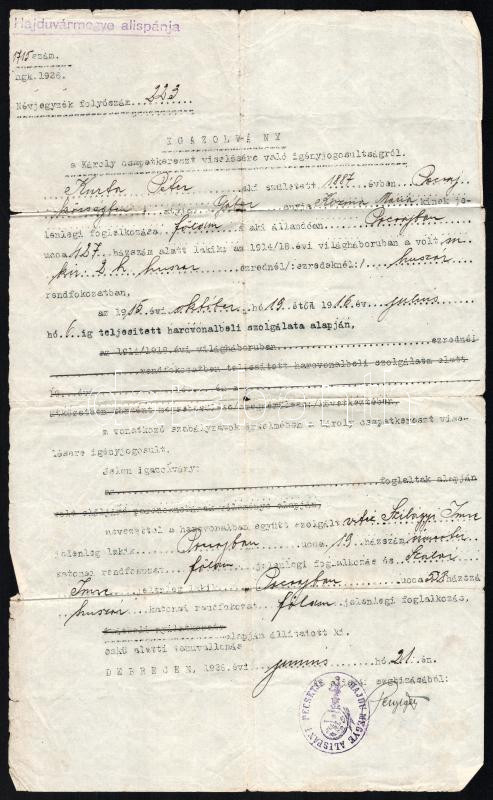 Hajduvármegye alispánja
1715 szám.
ngk.1926.
Névjegyzék folyószám 223
IGAZOLVÁNY
a Károly csapatkereszt viselésére való igényjogosultságról.
Kurta Péter aki született 1887 évben Pocsaj
községben atyja Gábor anyja Kozma Mária kinek je-
lenlegi foglalkozása földm. s aki állandóan Pocsajban
ucca 127 házszám alatt lakik: az 1914/18.évi világháboruban a volt m.
kir. 2. h. huszár ezrednél/:ezredeknél:/ huszár
rendfokozatban,
az 1915 évi október hó 19 étől 1916 év julius
hó 6. ig teljesitett harcvonalbeli szolgálata alapján,
az 1914/1918.évi világháboruban ezrednél
rendfokozatban teljesitett harcvonalbeli szolgálata alatt
a vonatkozó szabályzatok értelmében a Károly csapatkereszt vise-
lésére igényjogosult.
Jelen igazolvány:
az foglaltak alapján
nevezettel a harcvonalban együtt szolgált vitéz Szilágyi Imre
jelenleg lakik Pocsajban ucca 19 házszám
katonai rendfokozat földm jelenlegi foglalkozás és
Imre jelenleg lakik Pocsajban ucca 52 házszá
huszár katonai rendfokozat földm jelenlegi foglalkozás,
eskü alatti tanuvallomás alapján állitatott ki.
DEBRECEN, 1926.évi junius hó 21 én.
megbizásából:
HAJDU-MEGYE ALISPÁNI PECSÉTJE